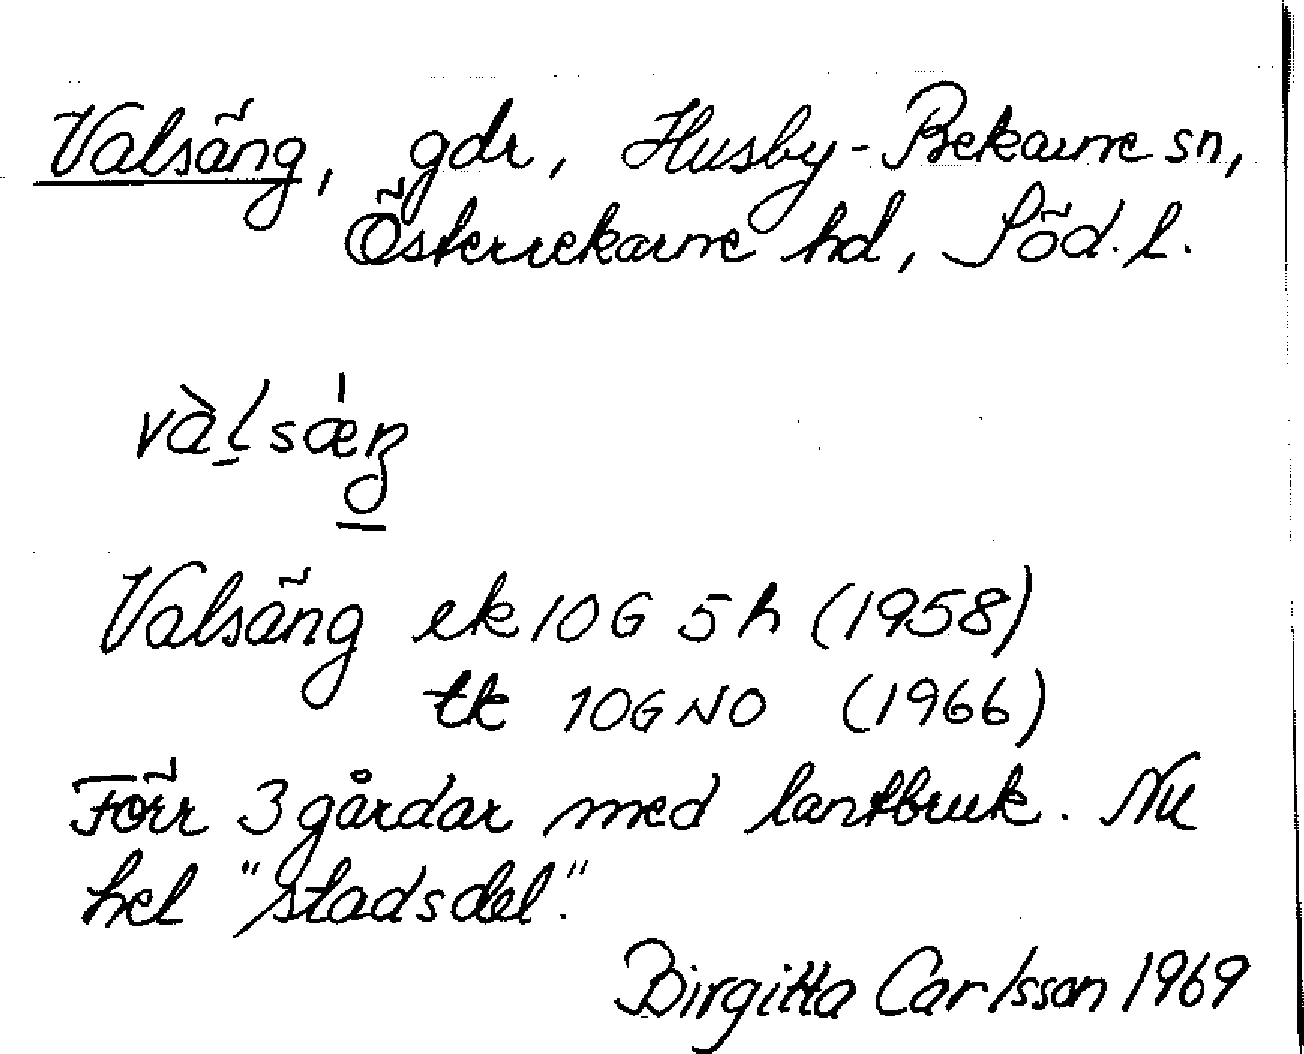 Valsäng, gdr, Husby-Rekarne sn,
Österrekarne hd, Söd. l.
vàlsæ̍ŋ
Valsäng ek 10G 5h (1958)
tk 10G NO (1966)
Förr 3 gårdar med lantbruk. Nu
hel "stadsdel".
Birgitta Carlsson 1969